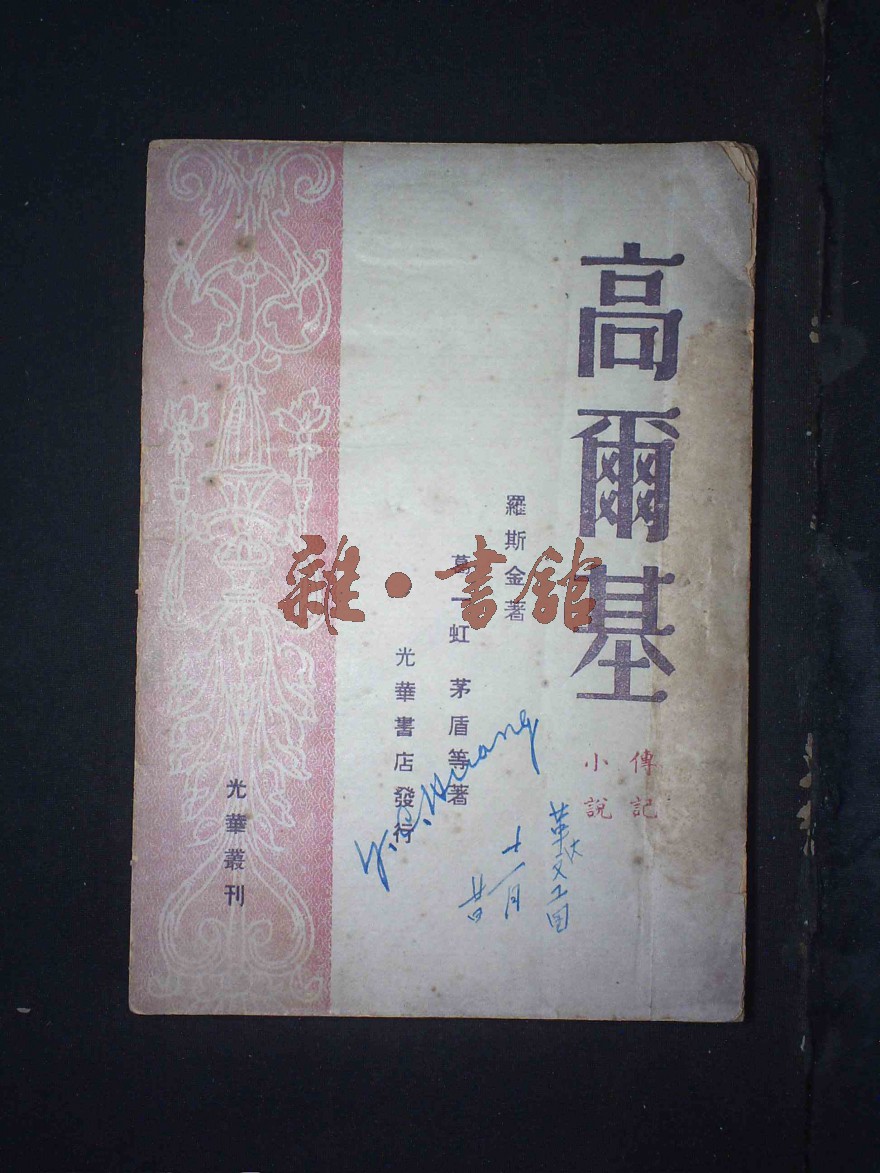 高爾基
傳記
小說
羅斯金著
葛一虹 茅盾等著
光華書店發行
光華叢刊
雜·書館
華大文工团
十一月